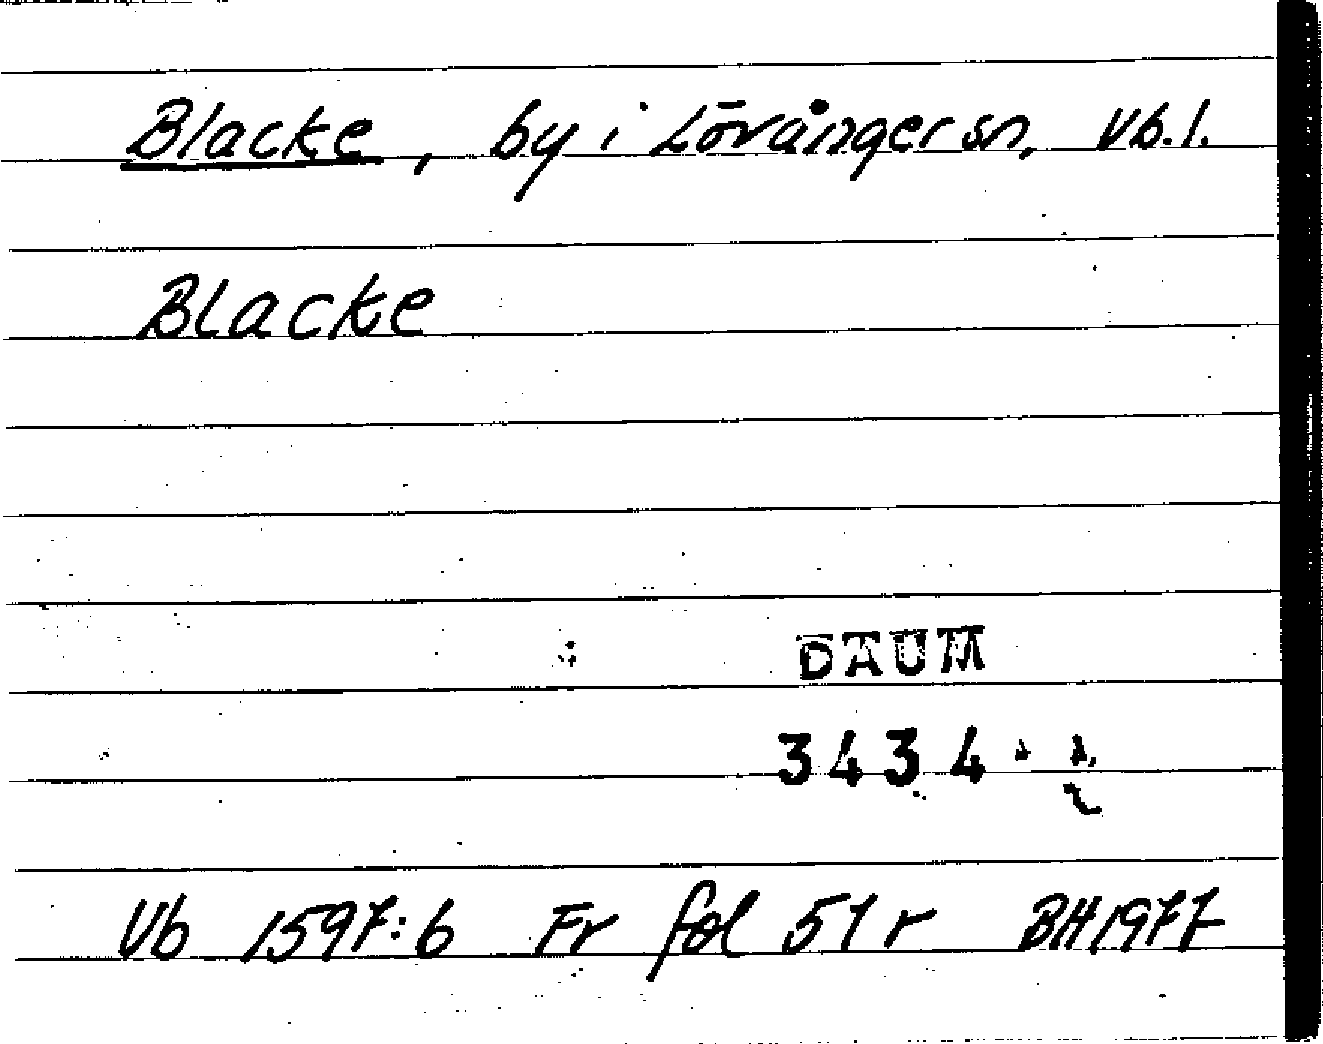 Blacke, by i Lövånger sn, Vb.l.
Blacke
DAUM
3434
Vb 1597:6 Fr fol 51 r BH 1977